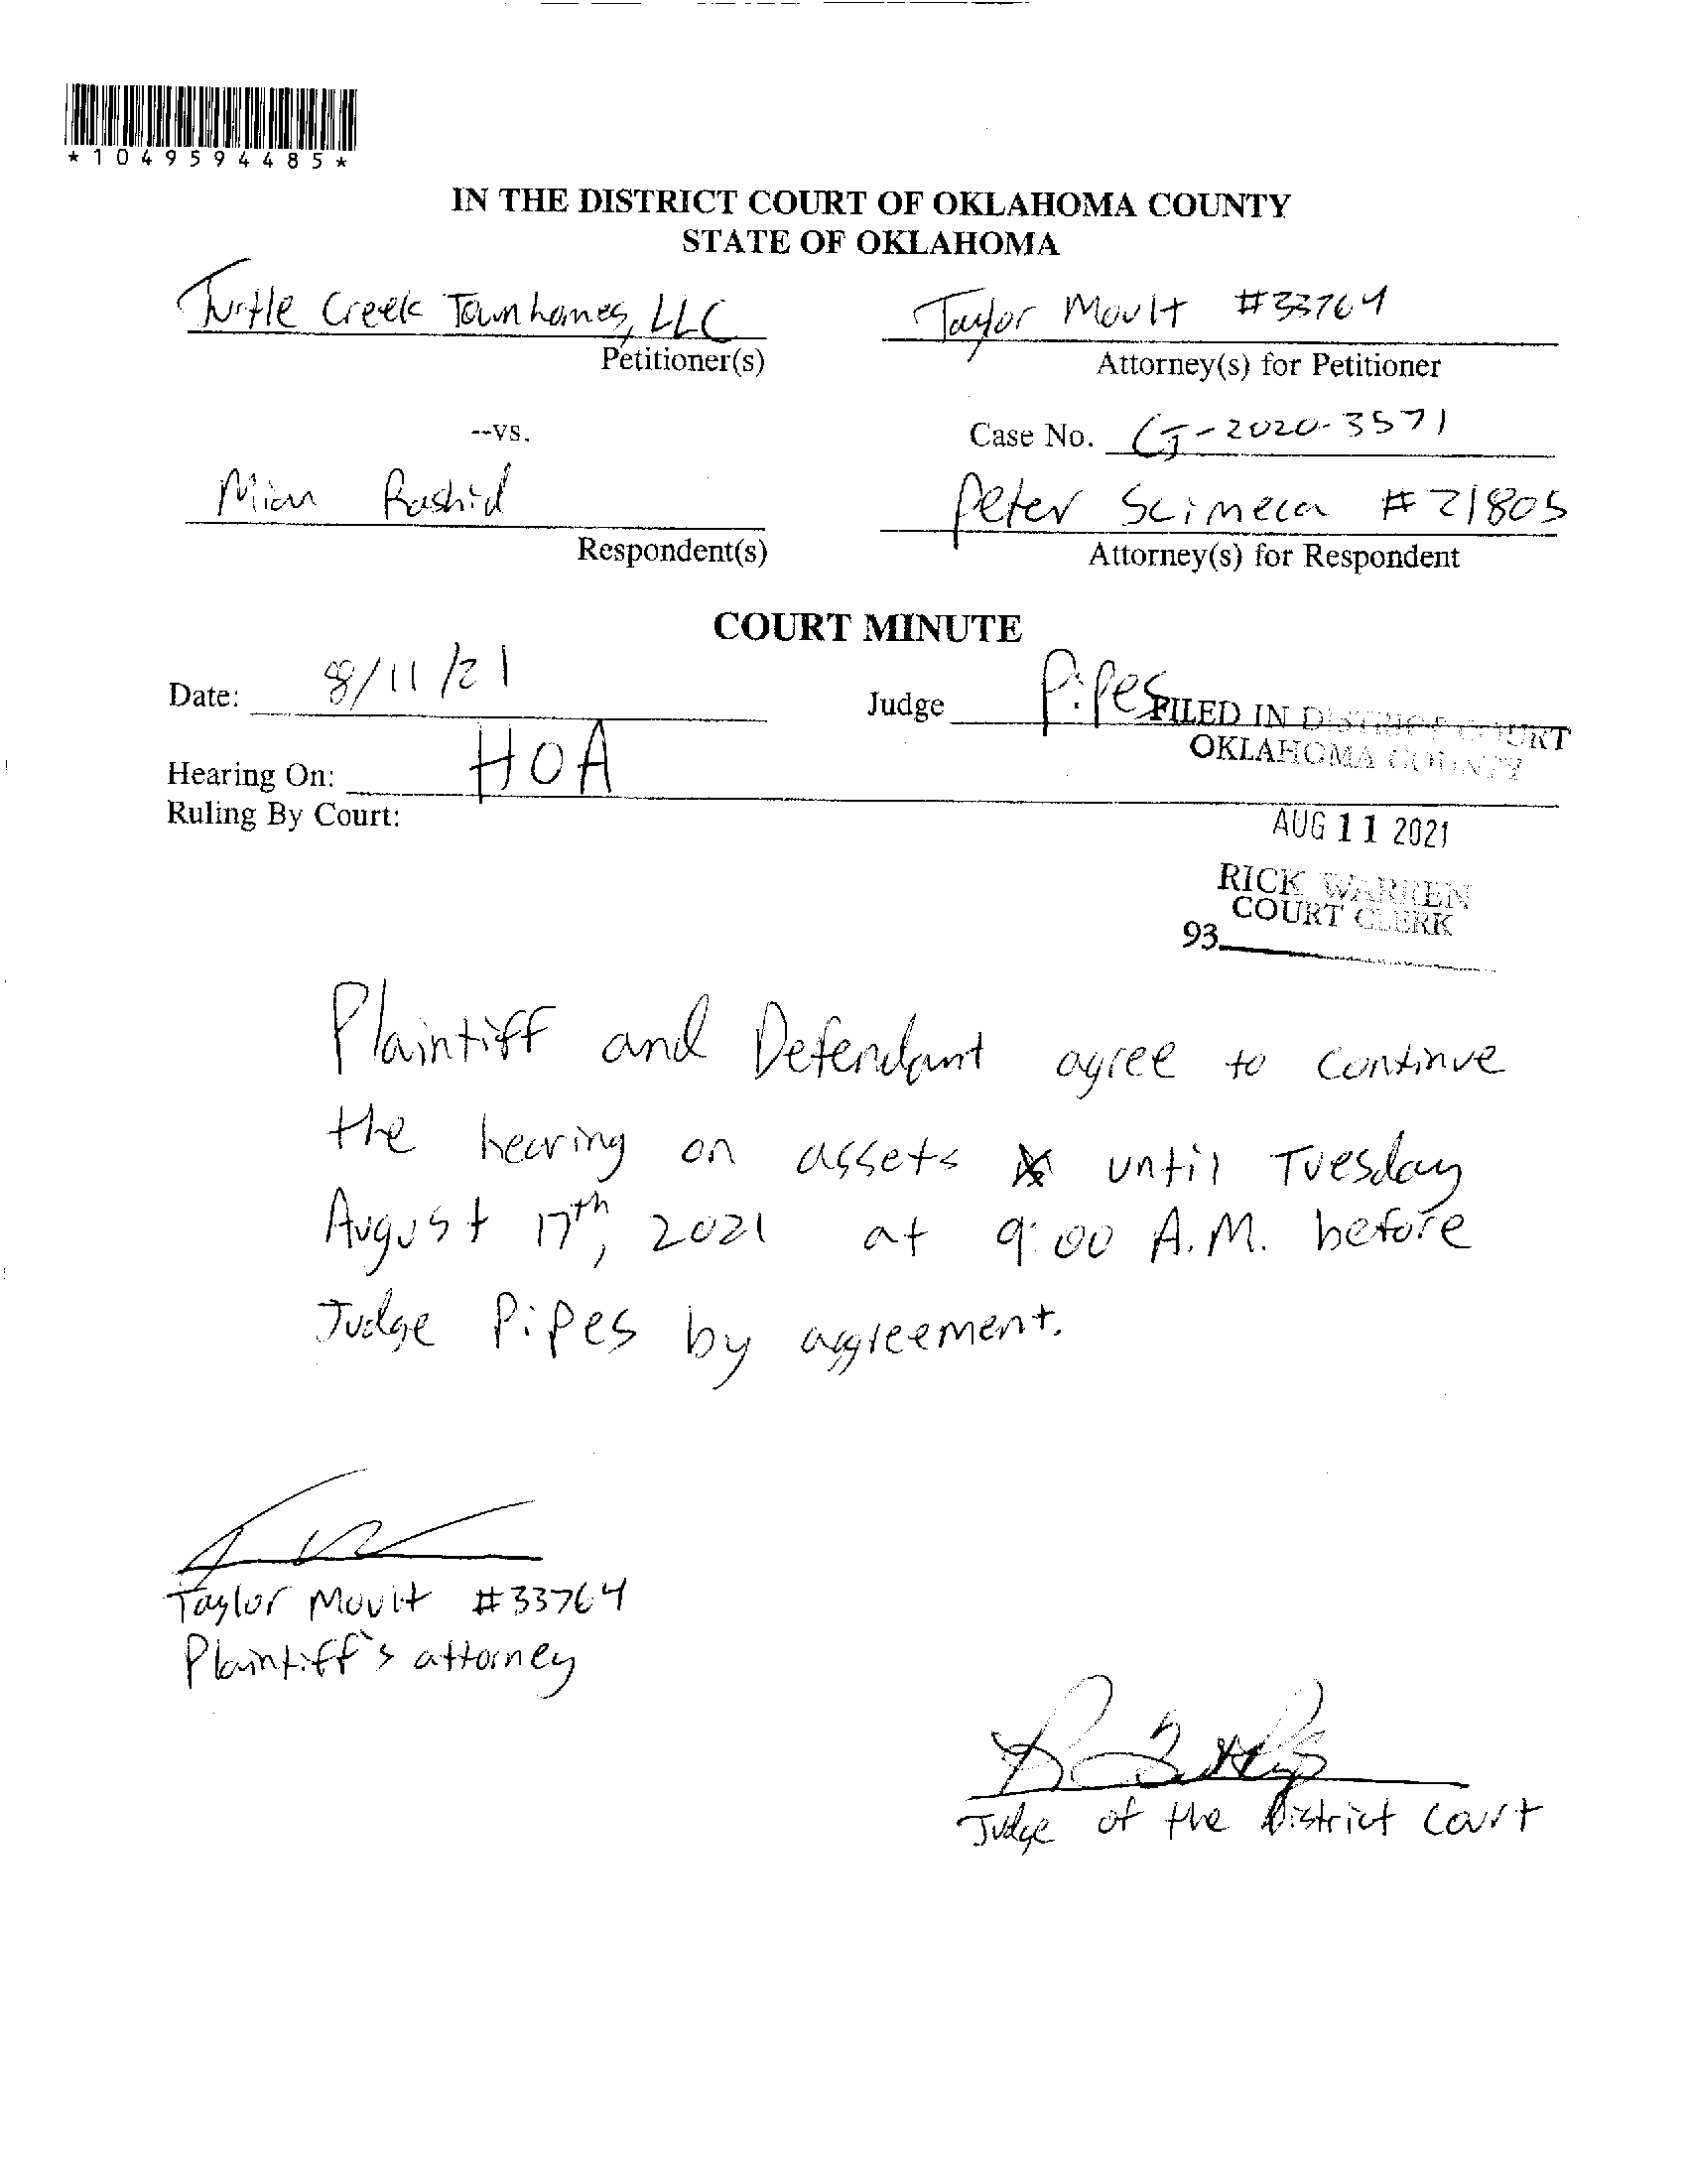 *1049594485*
IN THE DISTRICT COURT OF OKLAHOMA COUNTY
STATE OF OKLAHOMA
Turtle Creek Townhomes, LLC
Petitioner(s)
Taylor Moult #33764
Attorney(s) for Petitioner
--vs.
Case No. CJ-2020-3571
Mian Rashid
Respondent(s)
Peter Scimeca #21805
Attorney(s) for Respondent
COURT MINUTE
Date: 8/11/21
Judge Pipes
FILED IN DISTRICT COURT
OKLAHOMA COUNTY
Hearing On: HOA
Ruling By Court:
AUG 11 2021
RICK WARREN
COURT CLERK
93
Plaintiff and Defendant agree to continue
the hearing on assets until Tuesday
August 17th, 2021 at 9:00 A.M. before
Judge Pipes by agreement.
Taylor Moult #33764
Plaintiff's attorney
Judge of the District Court